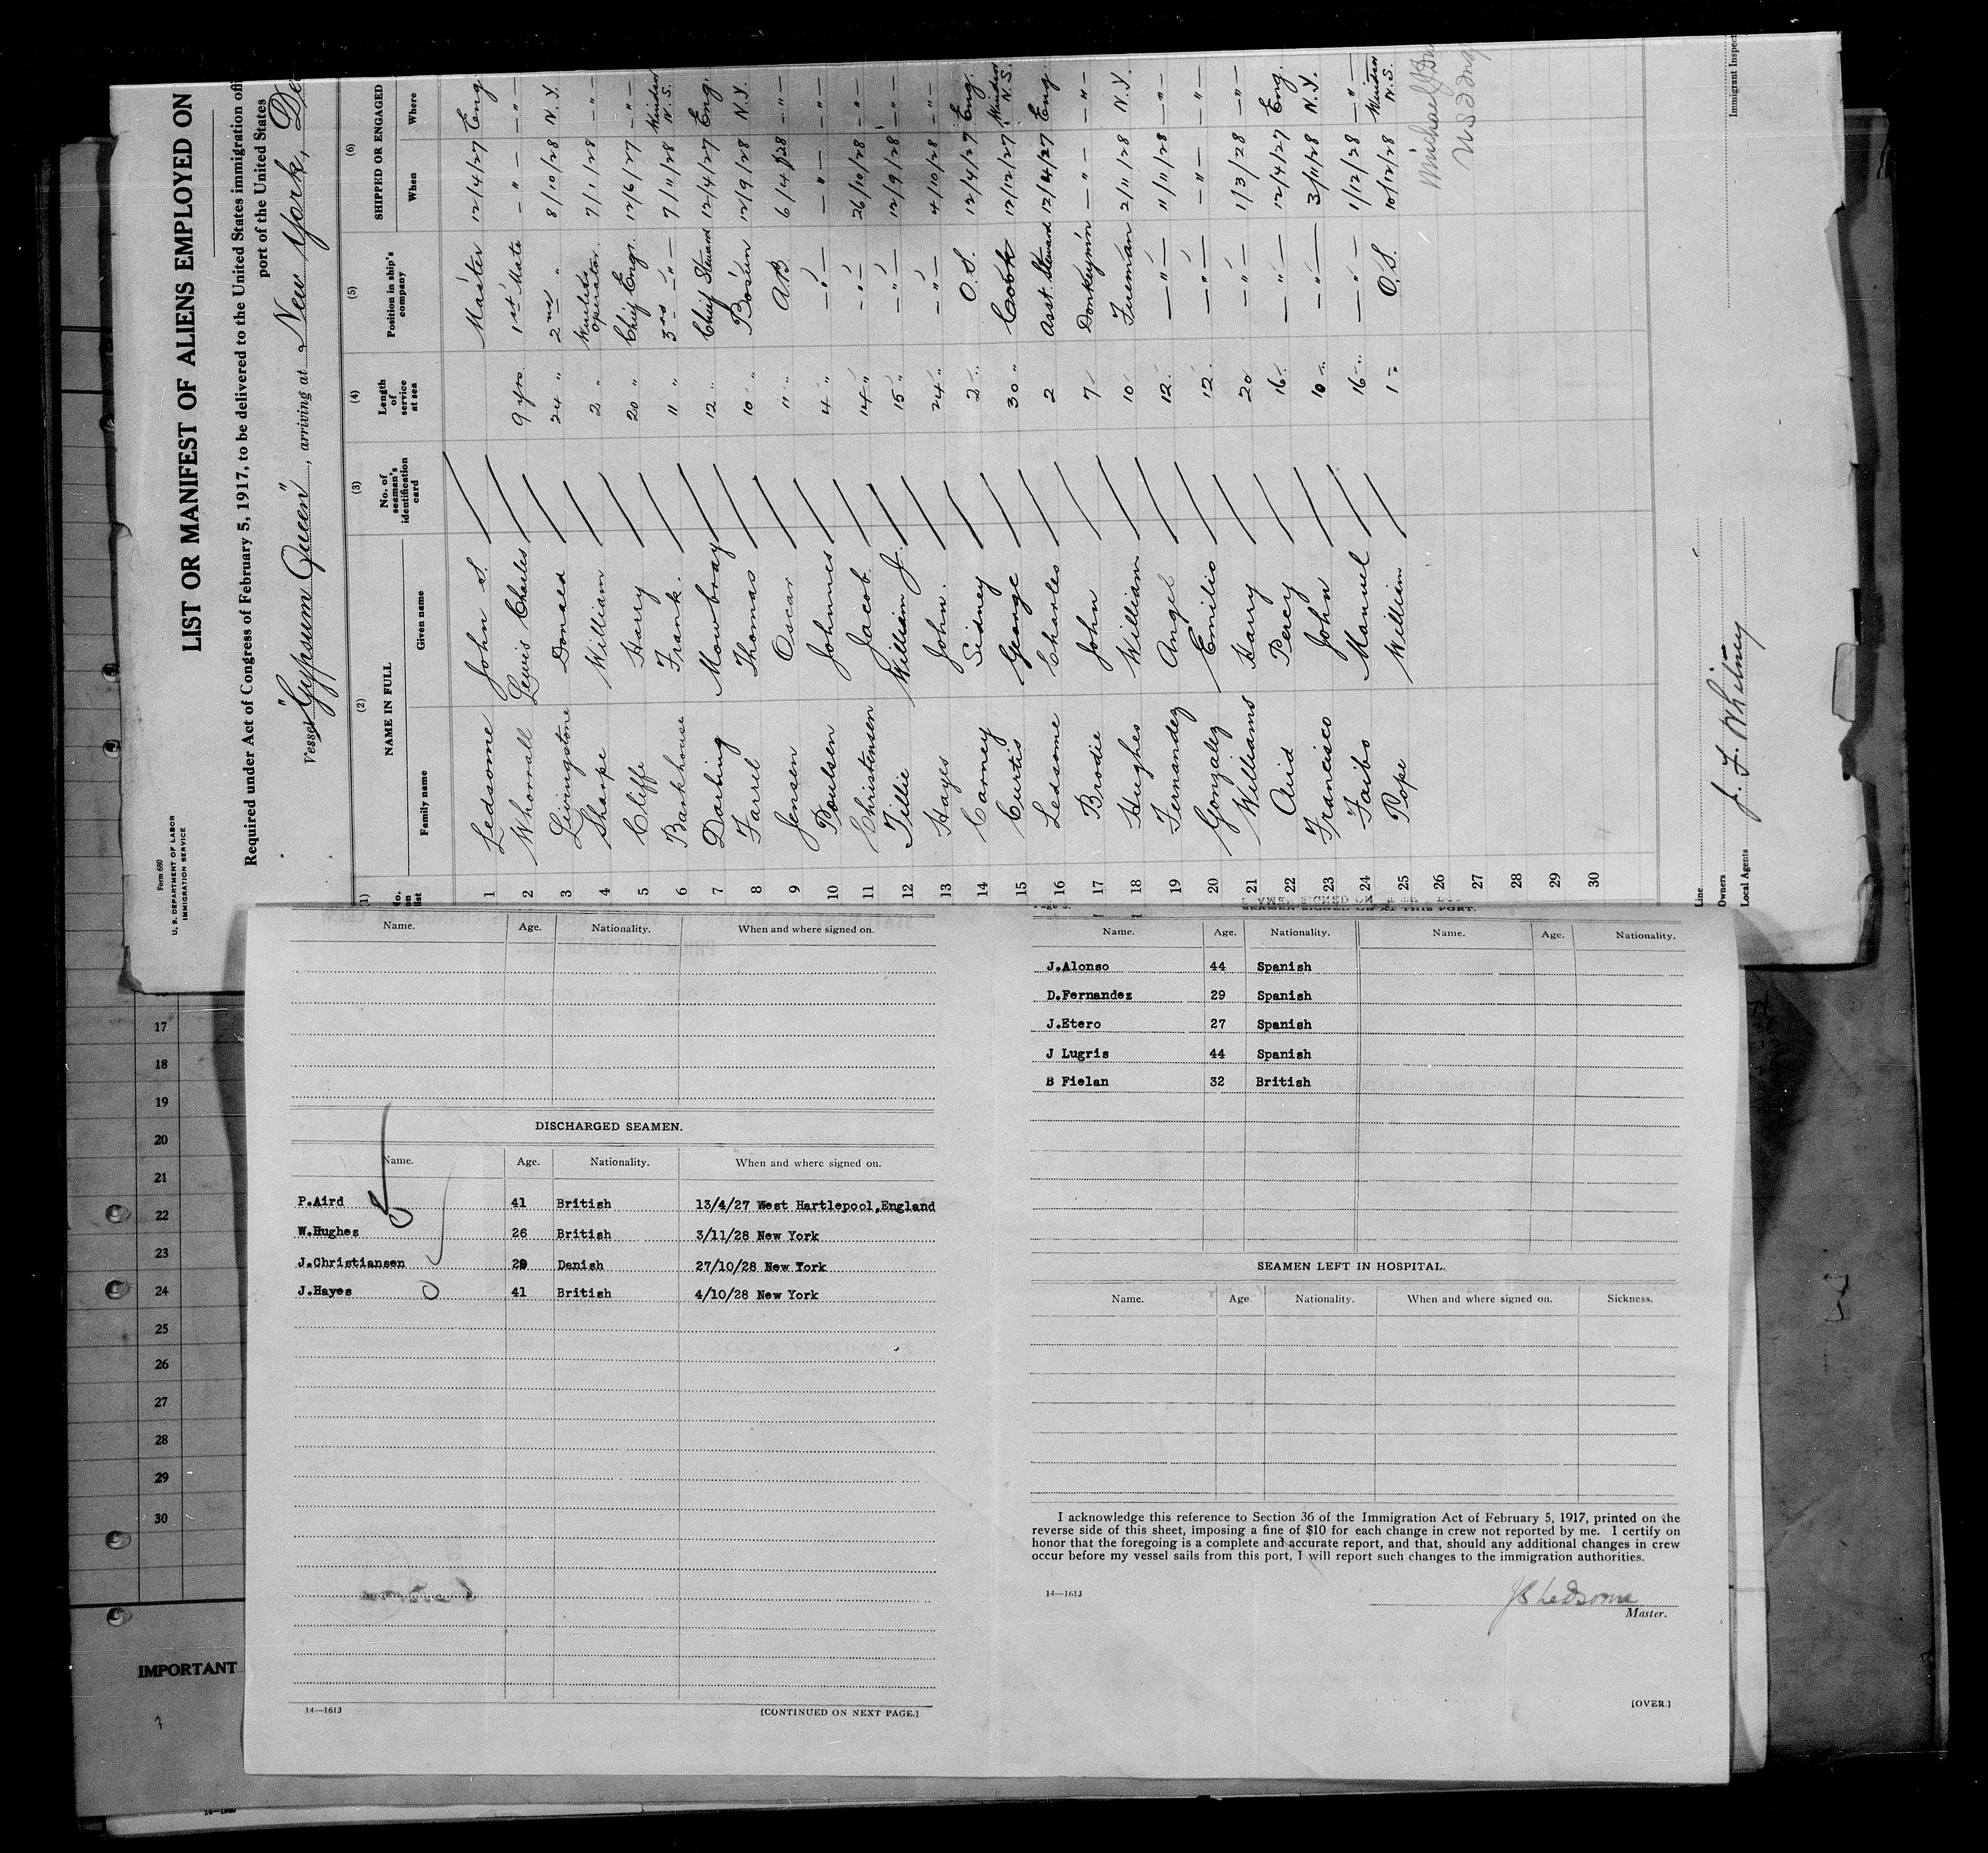 Form 680
U. S. DEPARTMENT OF LABOR
IMMIGRATION SERVICE
LIST OR MANIFEST OF ALIENS EMPLOYED ON
Required under Act of Congress of February 5, 1917, to be delivered to the United States immigration offi
port of the United States
Vessel "Gypsum Queen", arriving at New York, De
(1) (2) (3) (4) (5) (6)
No. on list NAME IN FULL No. of seaman's identification card Length of service at sea Position in ship's company SHIPPED OR ENGAGED
Family name Given name When Where
1 Ledsome John S. Master 12/4/27 Eng.
2 Whorrall Lewis Charles 9 yrs 1st Mate - " - - " -
3 Livingstone Donald 24 " 2nd " 8/10/28 N.Y.
4 Sharpe William 2 " Wireless Operator 7/1/28 - " -
5 Cliffe Harry 20 " Chief Engr. 12/6/27 - " -
6 Barkhouse Frank. 11 " 3rd - " - 7/11/28 Windsor N.S.
7 Darling Mowbray 12 " Chief Steward 12/4/27 Eng.
8 Farrel Thomas 10 " Bosun 12/9/28 N.Y.
9 Jensen Oscar 11 " A.B. 6/4/28 - " -
10 Poulsen Johnnes 4 " - " - - " - - " -
11 Christensen Jacob. 14 " - " - 26/10/28 - " -
12 Tillie William J. 15 " - " - 12/9/28 - " -
13 Hayes John. 24 " - " - 4/10/28 - " -
14 Carney Sidney 2 " O.S. 12/4/27 Eng.
15 Curtis George 30 " Cook 12/12/27 Windsor N.S.
16 Ledsome Charles 2 Asst. Steward 12/4/27 Eng.
17 Brodie John 7 Donkeyman - " - - " -
18 Hughes William 10 Fireman 2/11/28 N.Y.
19 Fernandez Angel 12 - " - 11/11/28 - " -
20 Gonzalez Emilio 12 - " - - " - - " -
21 Williams Harry 20 - " - 1/3/28 - " -
22 Aird Percy 16 - " - 12/4/27 Eng.
23 Francisco John 10 - " - 3/11/28 N.Y.
24 Faibo Manuel 16 - " - 1/12/28 - " -
25 Pope William 1 " O.S. 10/12/28 Windsor N.S.
26
27
28
29
30
Line
Owners
Local Agents J. F. Whitney
Immigrant Inspect
17
18
19
20
21
22
23
24
25
26
27
28
29
30
IMPORTANT
Name. Age. Nationality. When and where signed on.
DISCHARGED SEAMEN.
Name. Age. Nationality. When and where signed on.
P.Aird 41 British 13/4/27 West Hartlepool,England
W.Hughes 26 British 3/11/28 New York
J.Christiansen 29 Danish 27/10/28 New York
J.Hayes 41 British 4/10/28 New York
14—1613 [CONTINUED ON NEXT PAGE.]
SEAMEN SIGNED ON AT THIS PORT.
Name. Age. Nationality. Name. Age. Nationality.
J.Alonso 44 Spanish
D.Fernandez 29 Spanish
J.Etero 27 Spanish
J Lugris 44 Spanish
B Fielan 32 British
SEAMEN LEFT IN HOSPITAL.
Name. Age Nationality. When and where signed on. Sickness.
I acknowledge this reference to Section 36 of the Immigration Act of February 5, 1917, printed on the
reverse side of this sheet, imposing a fine of $10 for each change in crew not reported by me. I certify on
honor that the foregoing is a complete and accurate report, and that, should any additional changes in crew
occur before my vessel sails from this port, I will report such changes to the immigration authorities.
14—1613
JS Ledsome
Master.
[OVER.]